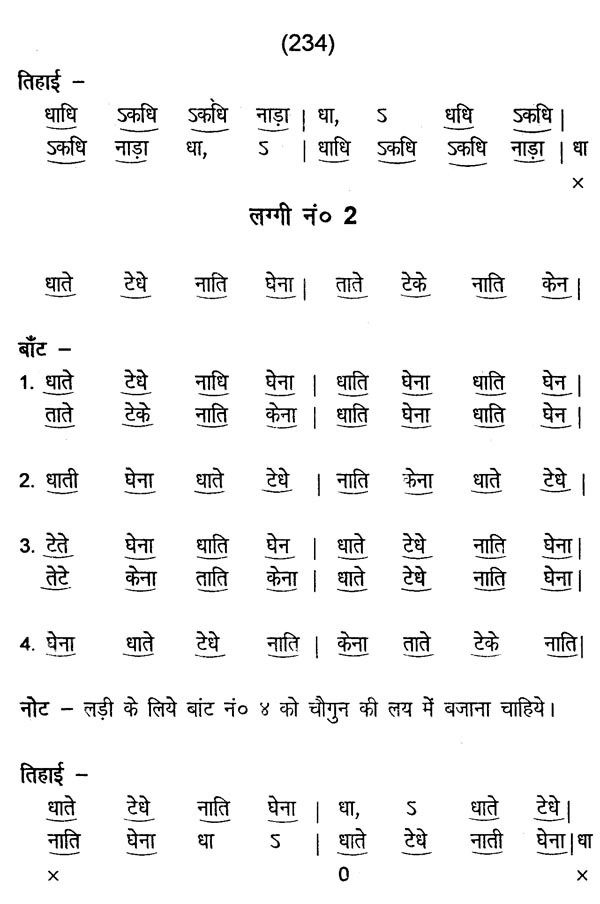 (234)
तिहाई –
धाधि ऽकधि ऽकधि नाड़ा | धा, ऽ धधि ऽकधि |
ऽकधि नाड़ा धा, ऽ | धाधि ऽकधि ऽकधि नाड़ा | धा
×
लग्गी नं० 2
धाते टेधे नाति घेना | ताते टेके नाति केन |
बाँट –
1. धाते टेधे नाधि घेना | धाति घेना धाति घेन |
ताते टेके नाति केना | धाति घेना धाति घेन |
2. धाती घेना धाते टेधे | नाति केना धाते टेधे |
3. टेते घेना धाति घेन | धाते टेधे नाति घेना |
तेटे केना ताति केना | धाते टेधे नाति घेना |
4. घेना धाते टेधे नाति | केना ताते टेके नाति |
नोट – लड़ी के लिये बांट नं० ४ को चौगुन की लय में बजाना चाहिये।
तिहाई –
धाते टेधे नाति घेना | धा, ऽ धाते टेधे |
नाति घेना धा ऽ | धाते टेधे नाती घेना | धा
× 0 ×